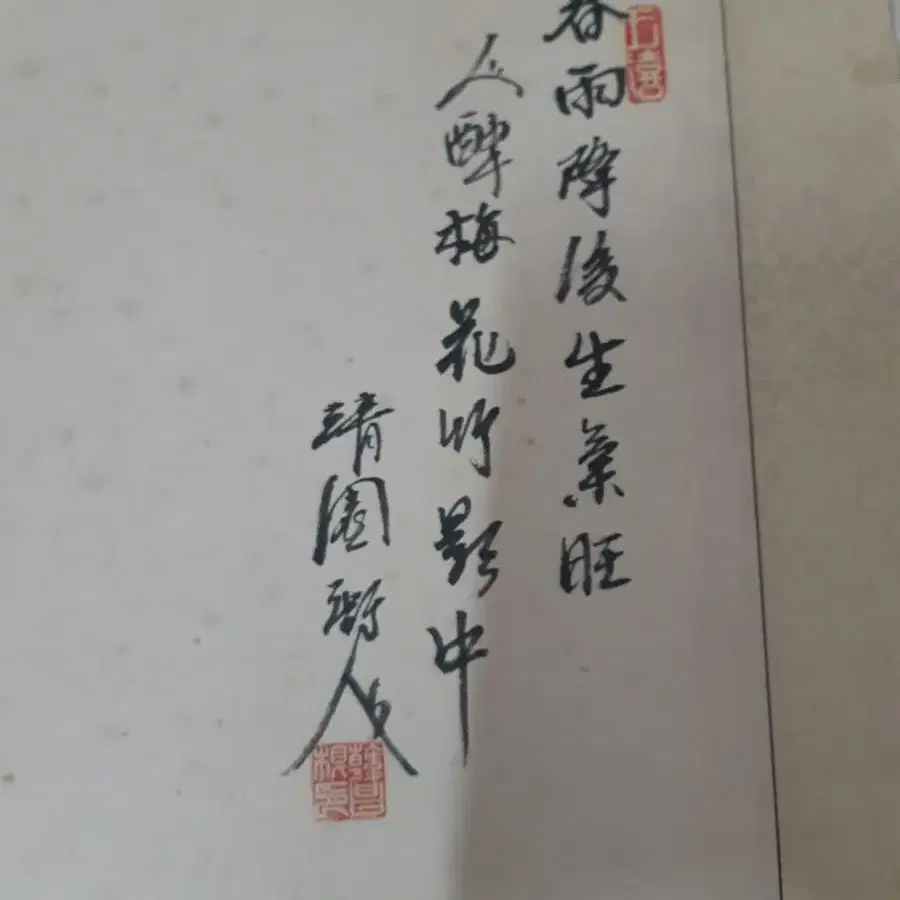 春雨降後生氣旺
人醉梅花竹影中
靖園 人